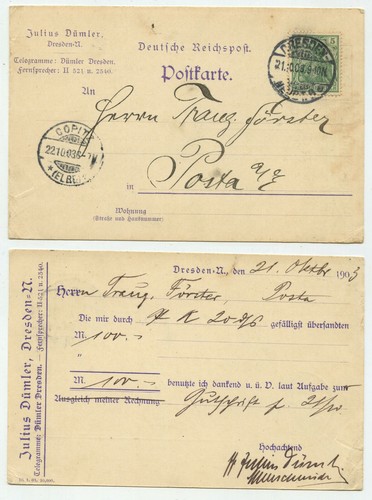 Julius Dümler.
Dresden-N.
Telegramme: Dümler Dresden.
Fernsprecher: II 521 u. 2340.
Deutsche Reichspost.
Postkarte.
5
DRESDEN-
21.10.03
An
Herrn Traug. Förster
COPITZ
22.10.03
*(ELBE)
in Posta a/E
Wohnung
(Straße und Hausnummer)
Julius Dümler, Dresden-N.
Telegramme: Dümler Dresden. — Fernsprecher: II 521 u. 2340.
Dresden-N., den 21. Oktbr 1903
Herrn Traug. Förster, Posta
Die mir durch P K 20 d/s gefälligst übersandten
M. 100.-
"
M. 100.- benutzte ich dankend u. ü. V. laut Aufgabe zum
Ausgleich meiner Rechnung Gutschrift p. 21/10
Hochachtend
Julius Dümler